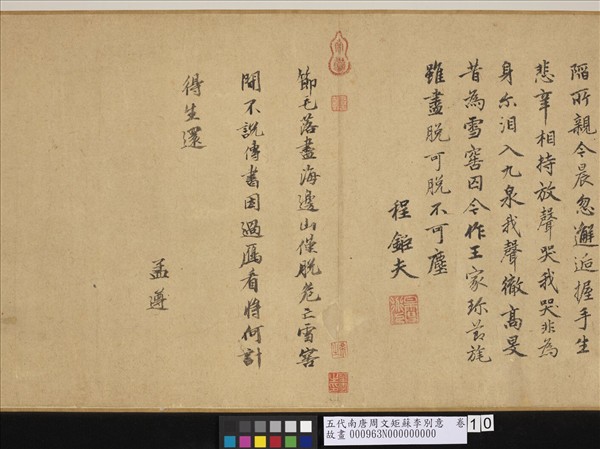 陷所親今晨忽邂逅握手生
悲辛相持放聲哭我哭非為
身尔泪入九泉我聲徹高旻
昔為雪窖囚今作王家珍莭旄
雖盡脫可脫不可塵
程鉅夫
節毛落盡海邊山僅脫危亡雪窖
間不說傳書因過鴈看將何計
得生還
孟遵
五代南唐周文矩蘇李別意 卷
故畫 000963N000000000
10